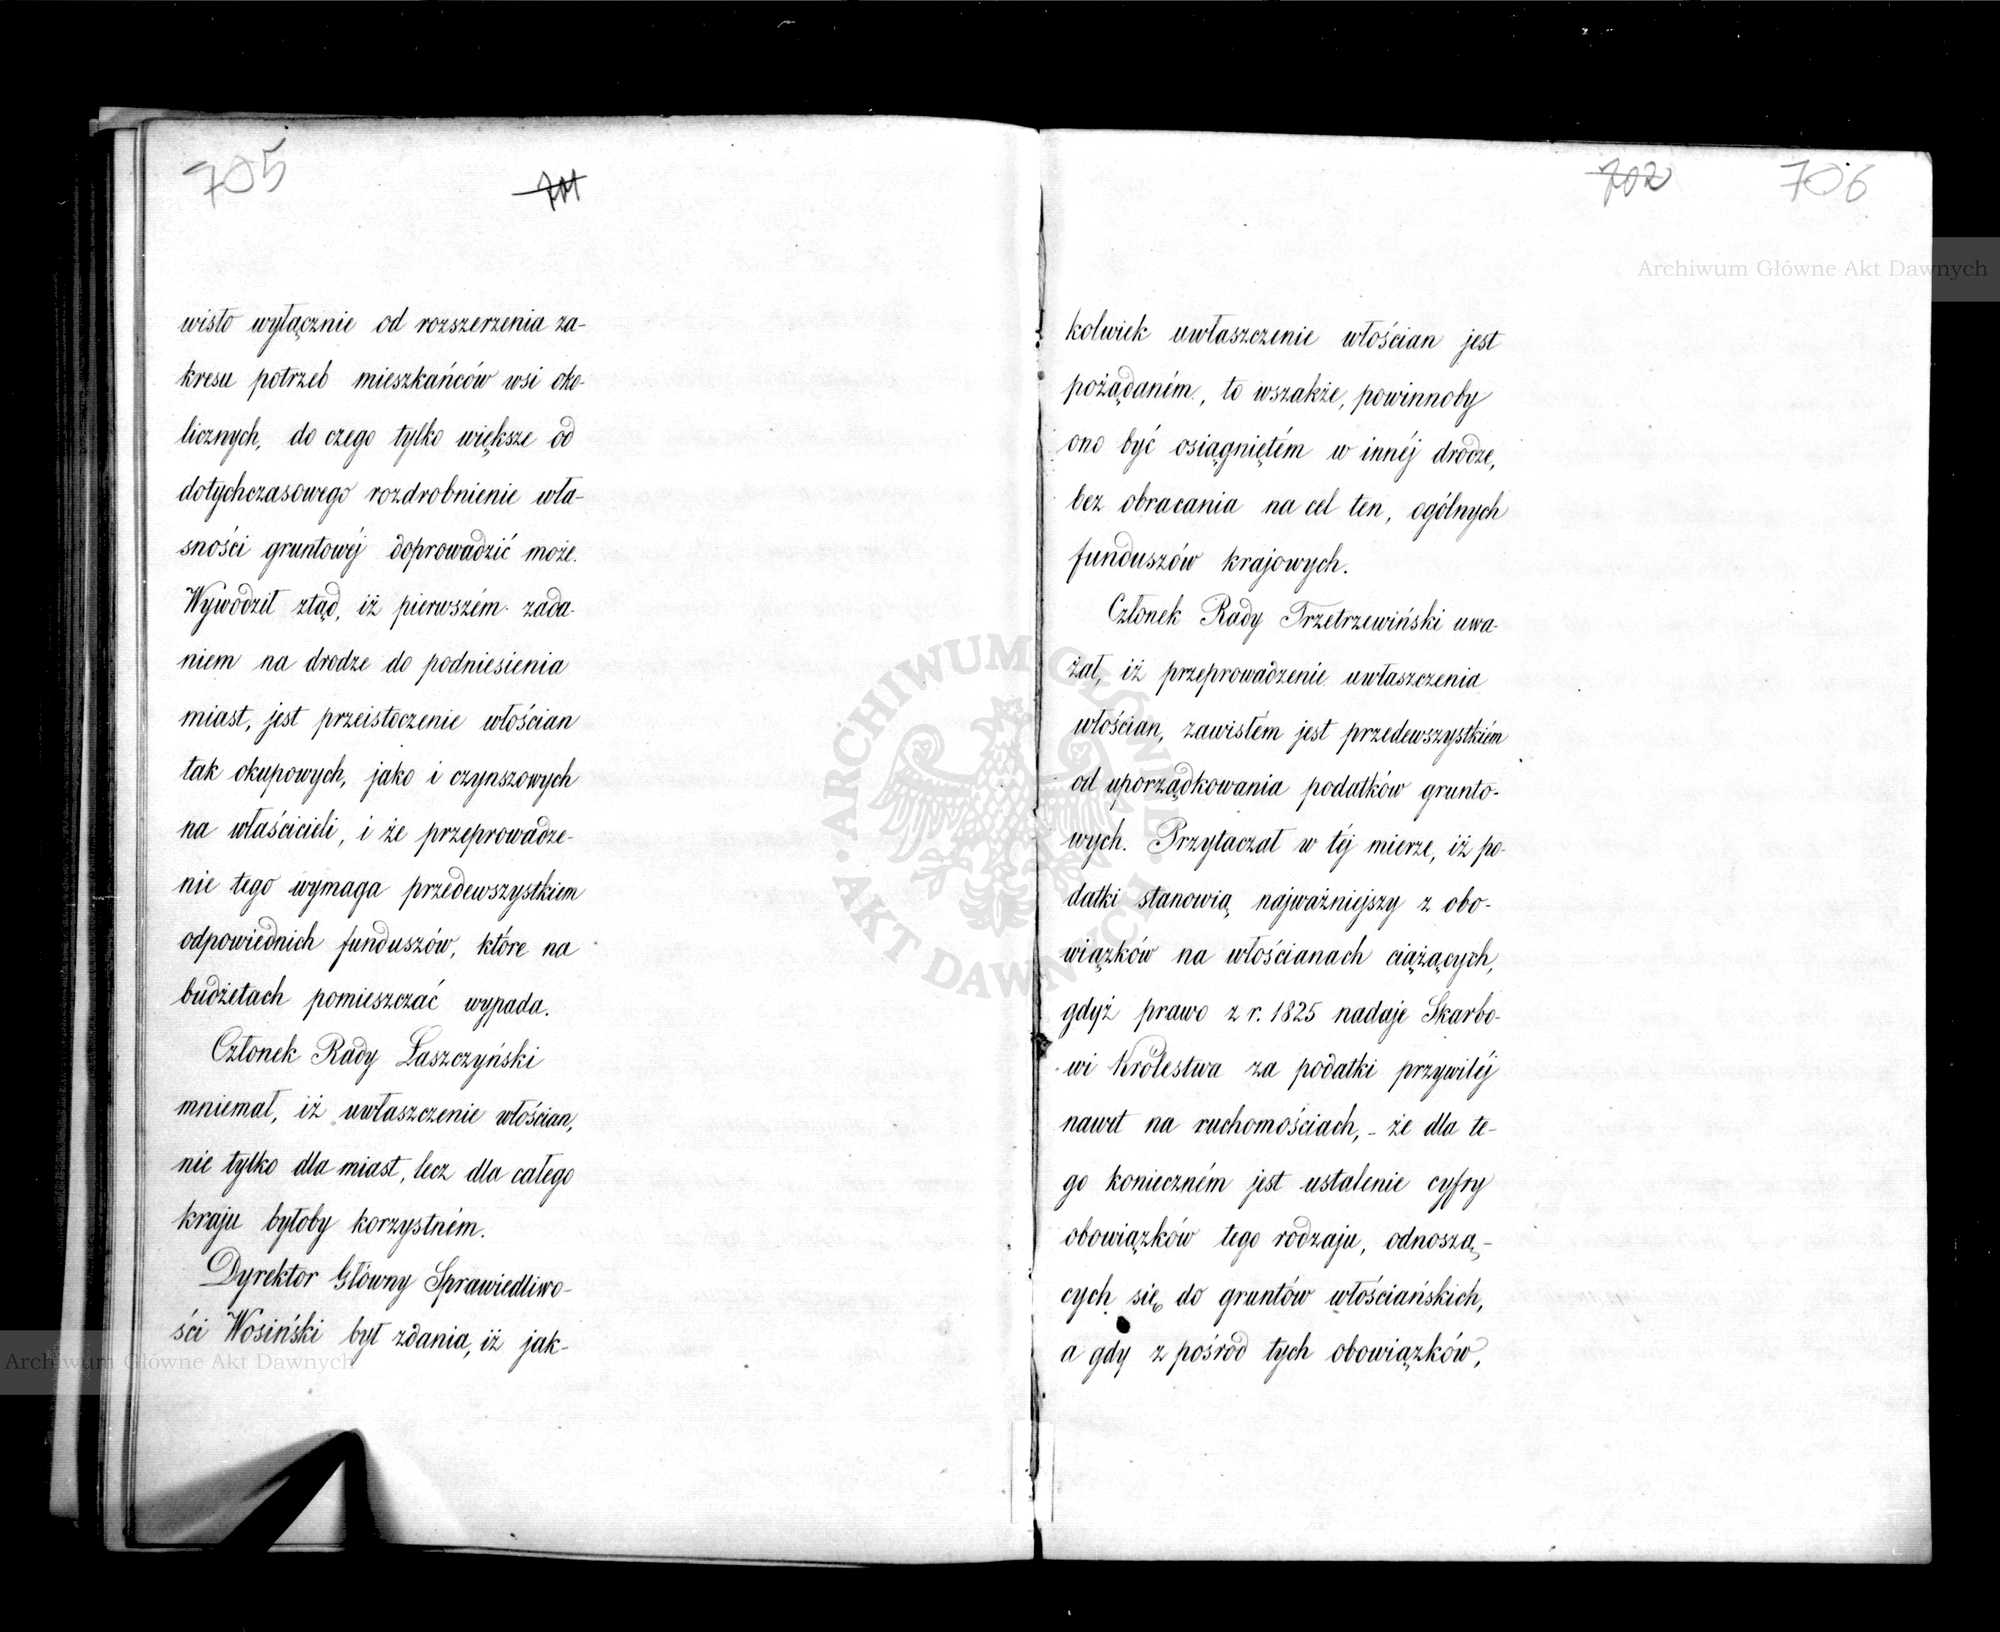 705
701
wisło wyłącznie od rozszerzenia za-
kresu potrzeb mieszkańców wsi oko-
licznych, do czego tylko większe od
dotychczasowego rozdrobnienie wła-
sności gruntowéj doprowadzić może.
Wywodził ztąd, iż pierwszém zada-
niem na drodze do podniesienia
miast, jest przeistoczenie włościan
tak okupowych, jako i czynszowych
na właścicieli, i że przeprowadze-
nie tego wymaga przedewszystkiem
odpowiednich funduszów, które na
budżetach pomieszczać wypada.
Członek Rady Łaszczyński
mniemał, iż uwłaszczenie włościan,
nie tylko dla miast, lecz dla całego
kraju byłoby korzystném.
Dyrektor Główny Sprawiedliwo-
ści Wosiński był zdania, iż jak-
702
706
kolwiek uwłaszczenie włościan jest
pożądaném, to wszakże, powinnoby
ono być osiągniętém w innéj drodze,
bez obracania na cel ten, ogólnych
funduszów krajowych.
Członek Rady Trzetrzewiński uwa-
żał, iż przeprowadzenie uwłaszczenia
włościan, zawisłém jest przedewszystkiém
od uporządkowania podatków grunto-
wych. Przytaczał w téj mierze, iż po-
datki stanowią najważniejszy z obo-
wiązków na włościanach ciążących,
gdyż prawo z r. 1825 nadaje Skarbo-
wi Królestwa za podatki przywiléj
nawet na ruchomościach, - że dla te-
go konieczném jest ustalenie cyfry
obowiązków tego rodzaju, odnoszą-
cych się do gruntów włościańskich,
a gdy z pośród tych obowiązków,
Archiwum Główne Akt Dawnych
Archiwum Główne Akt Dawnych
ARCHIWUM GŁÓWNE AKT DAWNYCH